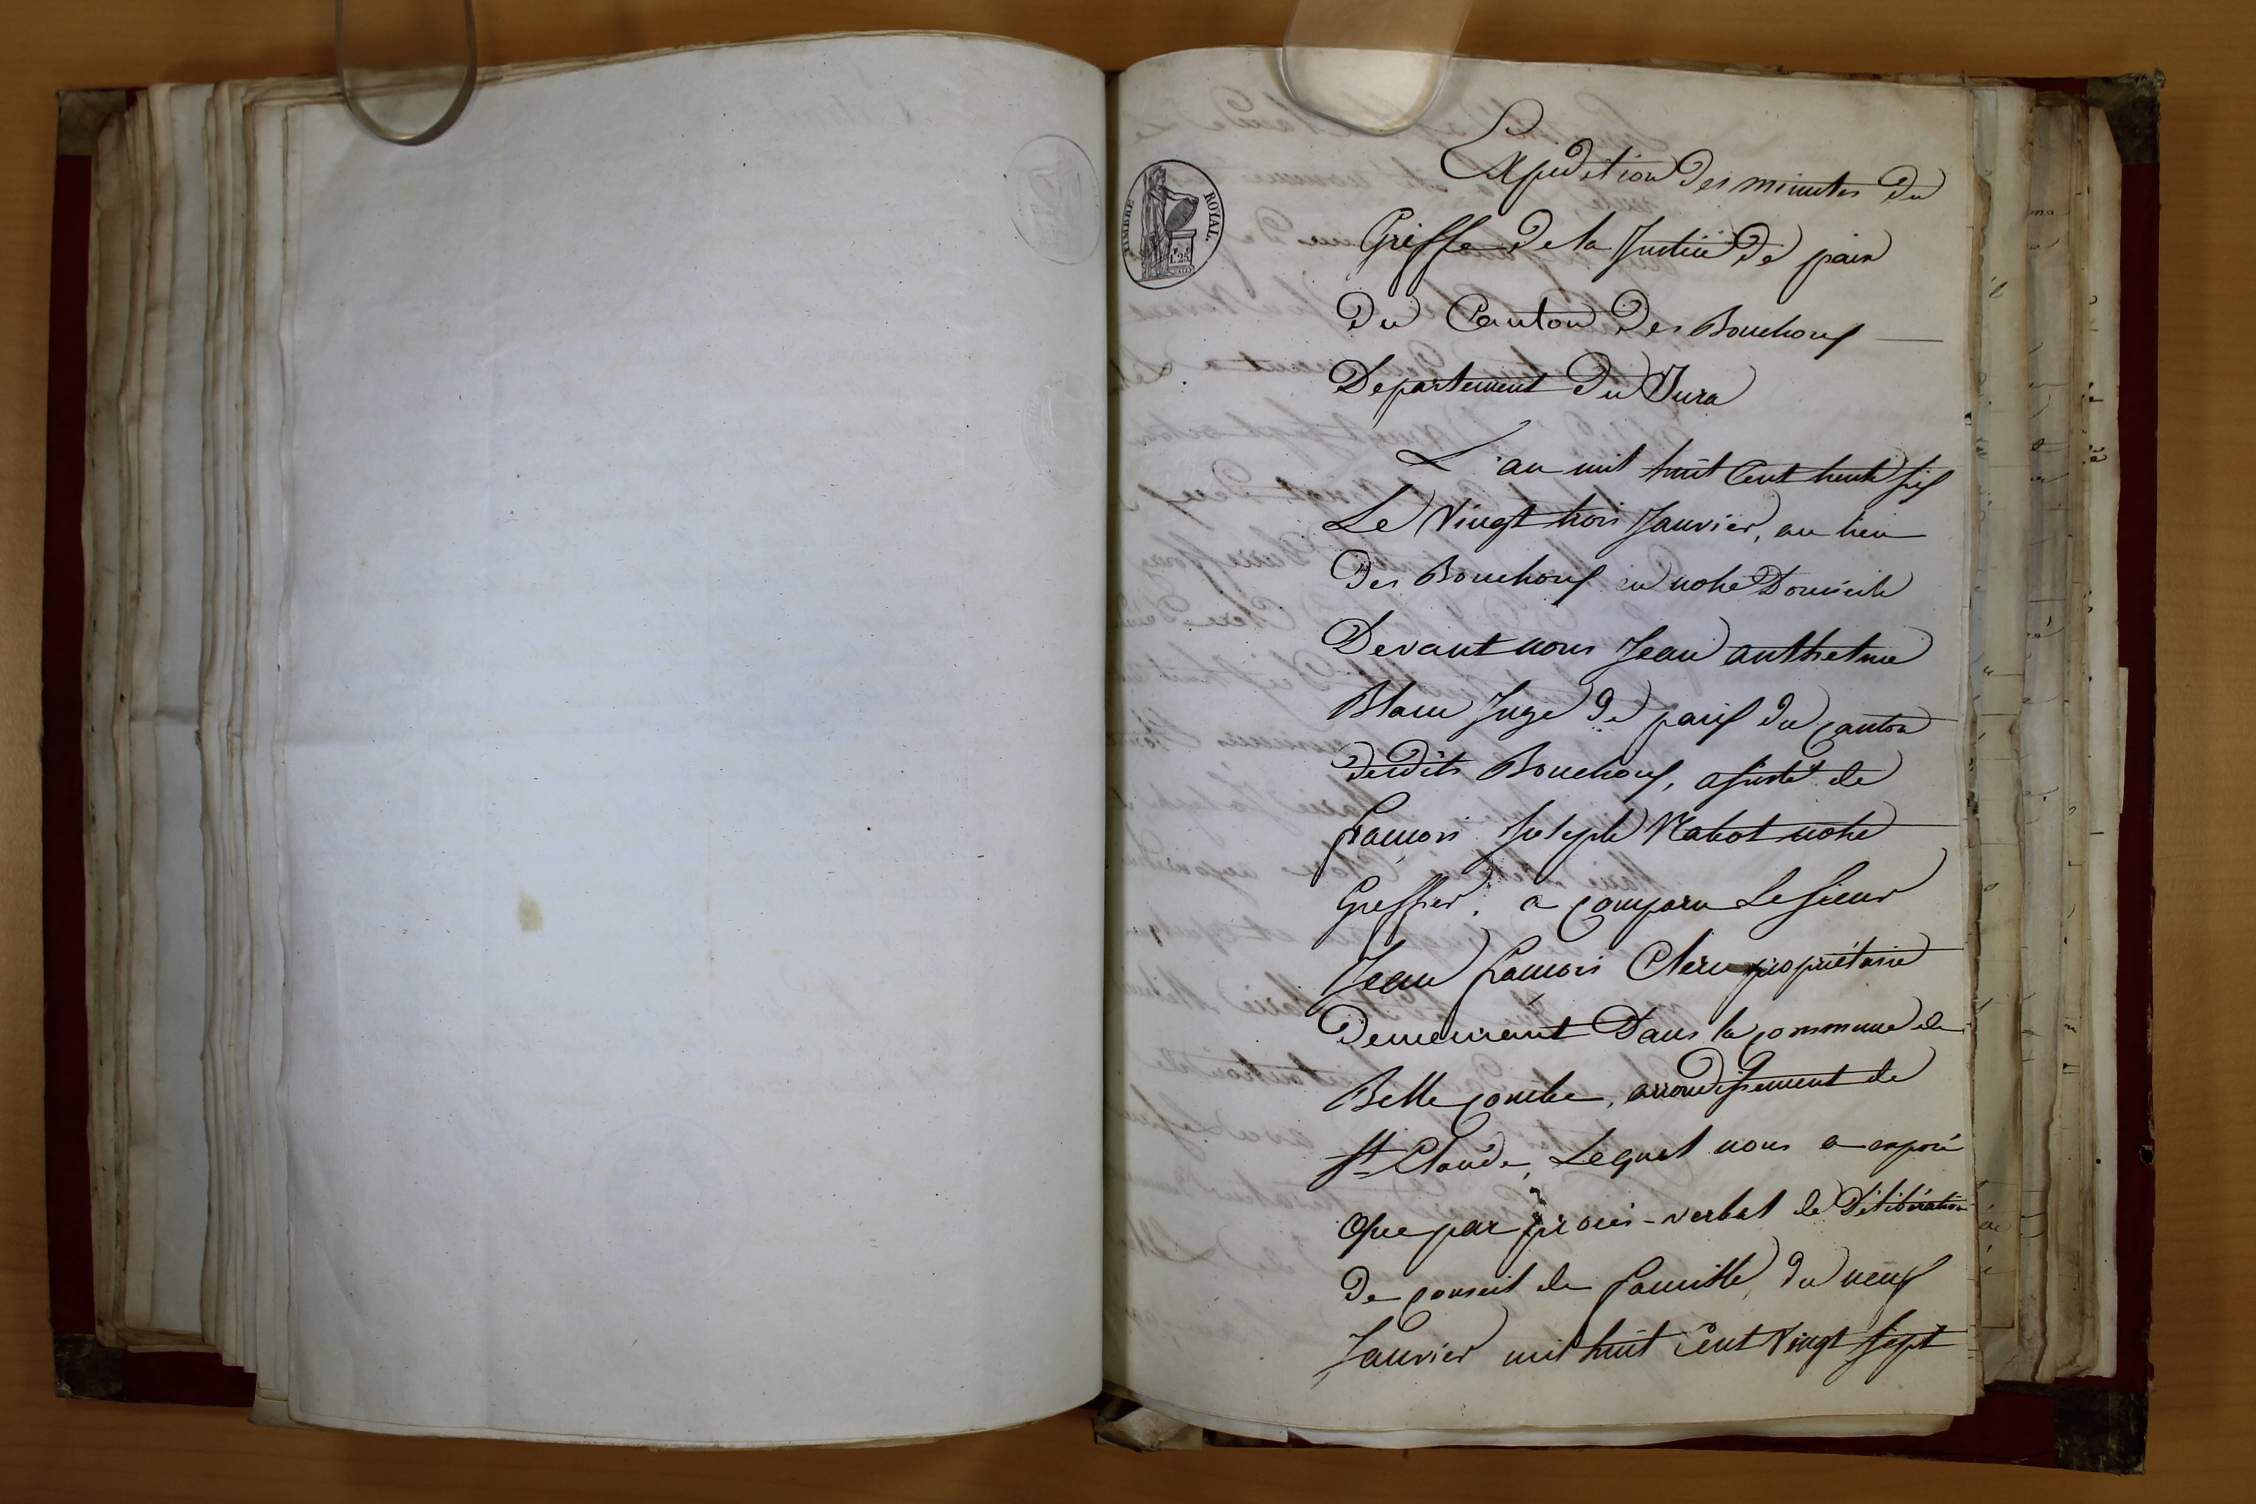 TIMBRE ROYAL.
1F 25
Expedition des minutes du
Greffe de la Justice de paix
du Canton des Bouchoux
Departement du Jura
L'an mil huit Cent trente six
Le Vingt trois Janvier, au lieu
des Bouchoux en notre Domicile
Devant nous Jean anthelme
Blanc Juge de paix du canton
desdits Bouchoux, assisté de
françois Joseph Mabot notre
Greffier. a comparu Le sieur
Jean françois Clerc propriétaire
Demeurant Dans la commune de
Belle combe, arrondissement de
St Claude, Lequel nous a exposé
Que par procès-verbal de Délibération
de conseil de famille, du neuf
Janvier mil huit Cent Vingt sept